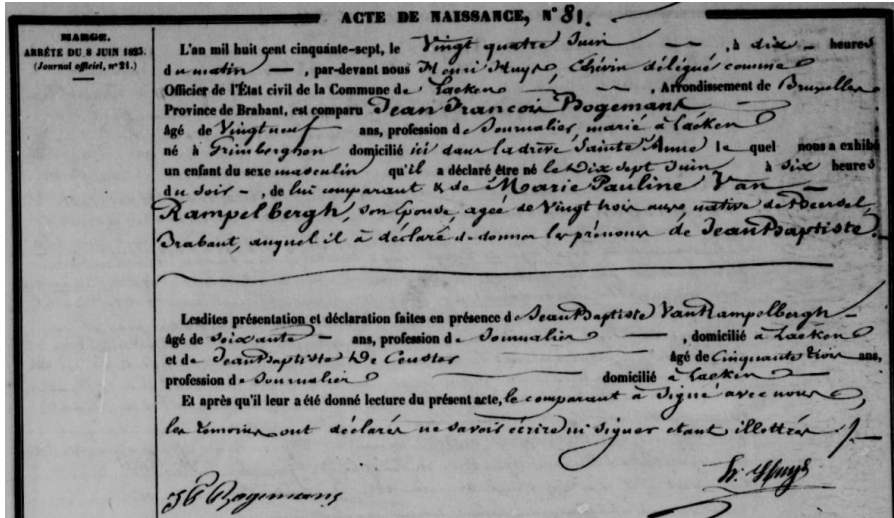 ACTE DE NAISSANCE, N° 81.
MARGE.
ARRÊTÉ DU 8 JUIN 1823.
(Journal officiel, n° 21.)
L'an mil huit cent cinquante-sept, le Vingt quatre Juin — , à dix — heures
du matin — , par-devant nous Henri Huys, Echevin délégué comme
Officier de l'État civil de la Commune de Laeken — , Arrondissement de Bruxelles
Province de Brabant, est comparu Jean Francois Bogemans
âgé de Vingt neuf — ans, profession de Journalier, marié à Laeken
né à Grimberghen domicilié ici dans la drève Sainte Anne le quel nous a exhibé
un enfant du sexe masculin qu'il a déclaré être né le Dix sept Juin à Six heures
du Soir — , de lui comparant & de Marie Pauline Van
Rampelbergh, son Epouse, agée de Vingt trois ans, native de Beersel,
Brabant, auquel il à déclaré de donner les prénoms de Jean Baptiste.
Lesdites présentation et déclaration faites en présence de Jean Baptiste Van Rampelbergh —
âgé de Soixante — ans, profession de Journalier — , domicilié à Laeken
et de Jean Baptiste De Ceuster — âgé de Cinquante trois ans,
profession de Journalier — domicilié à Laeken —
Et après qu'il leur a été donné lecture du présent acte, le comparant à Signé avec nous,
les témoins ont déclarés ne savoir écrire ni signer etant illettrés
h. Huys
Bogemans